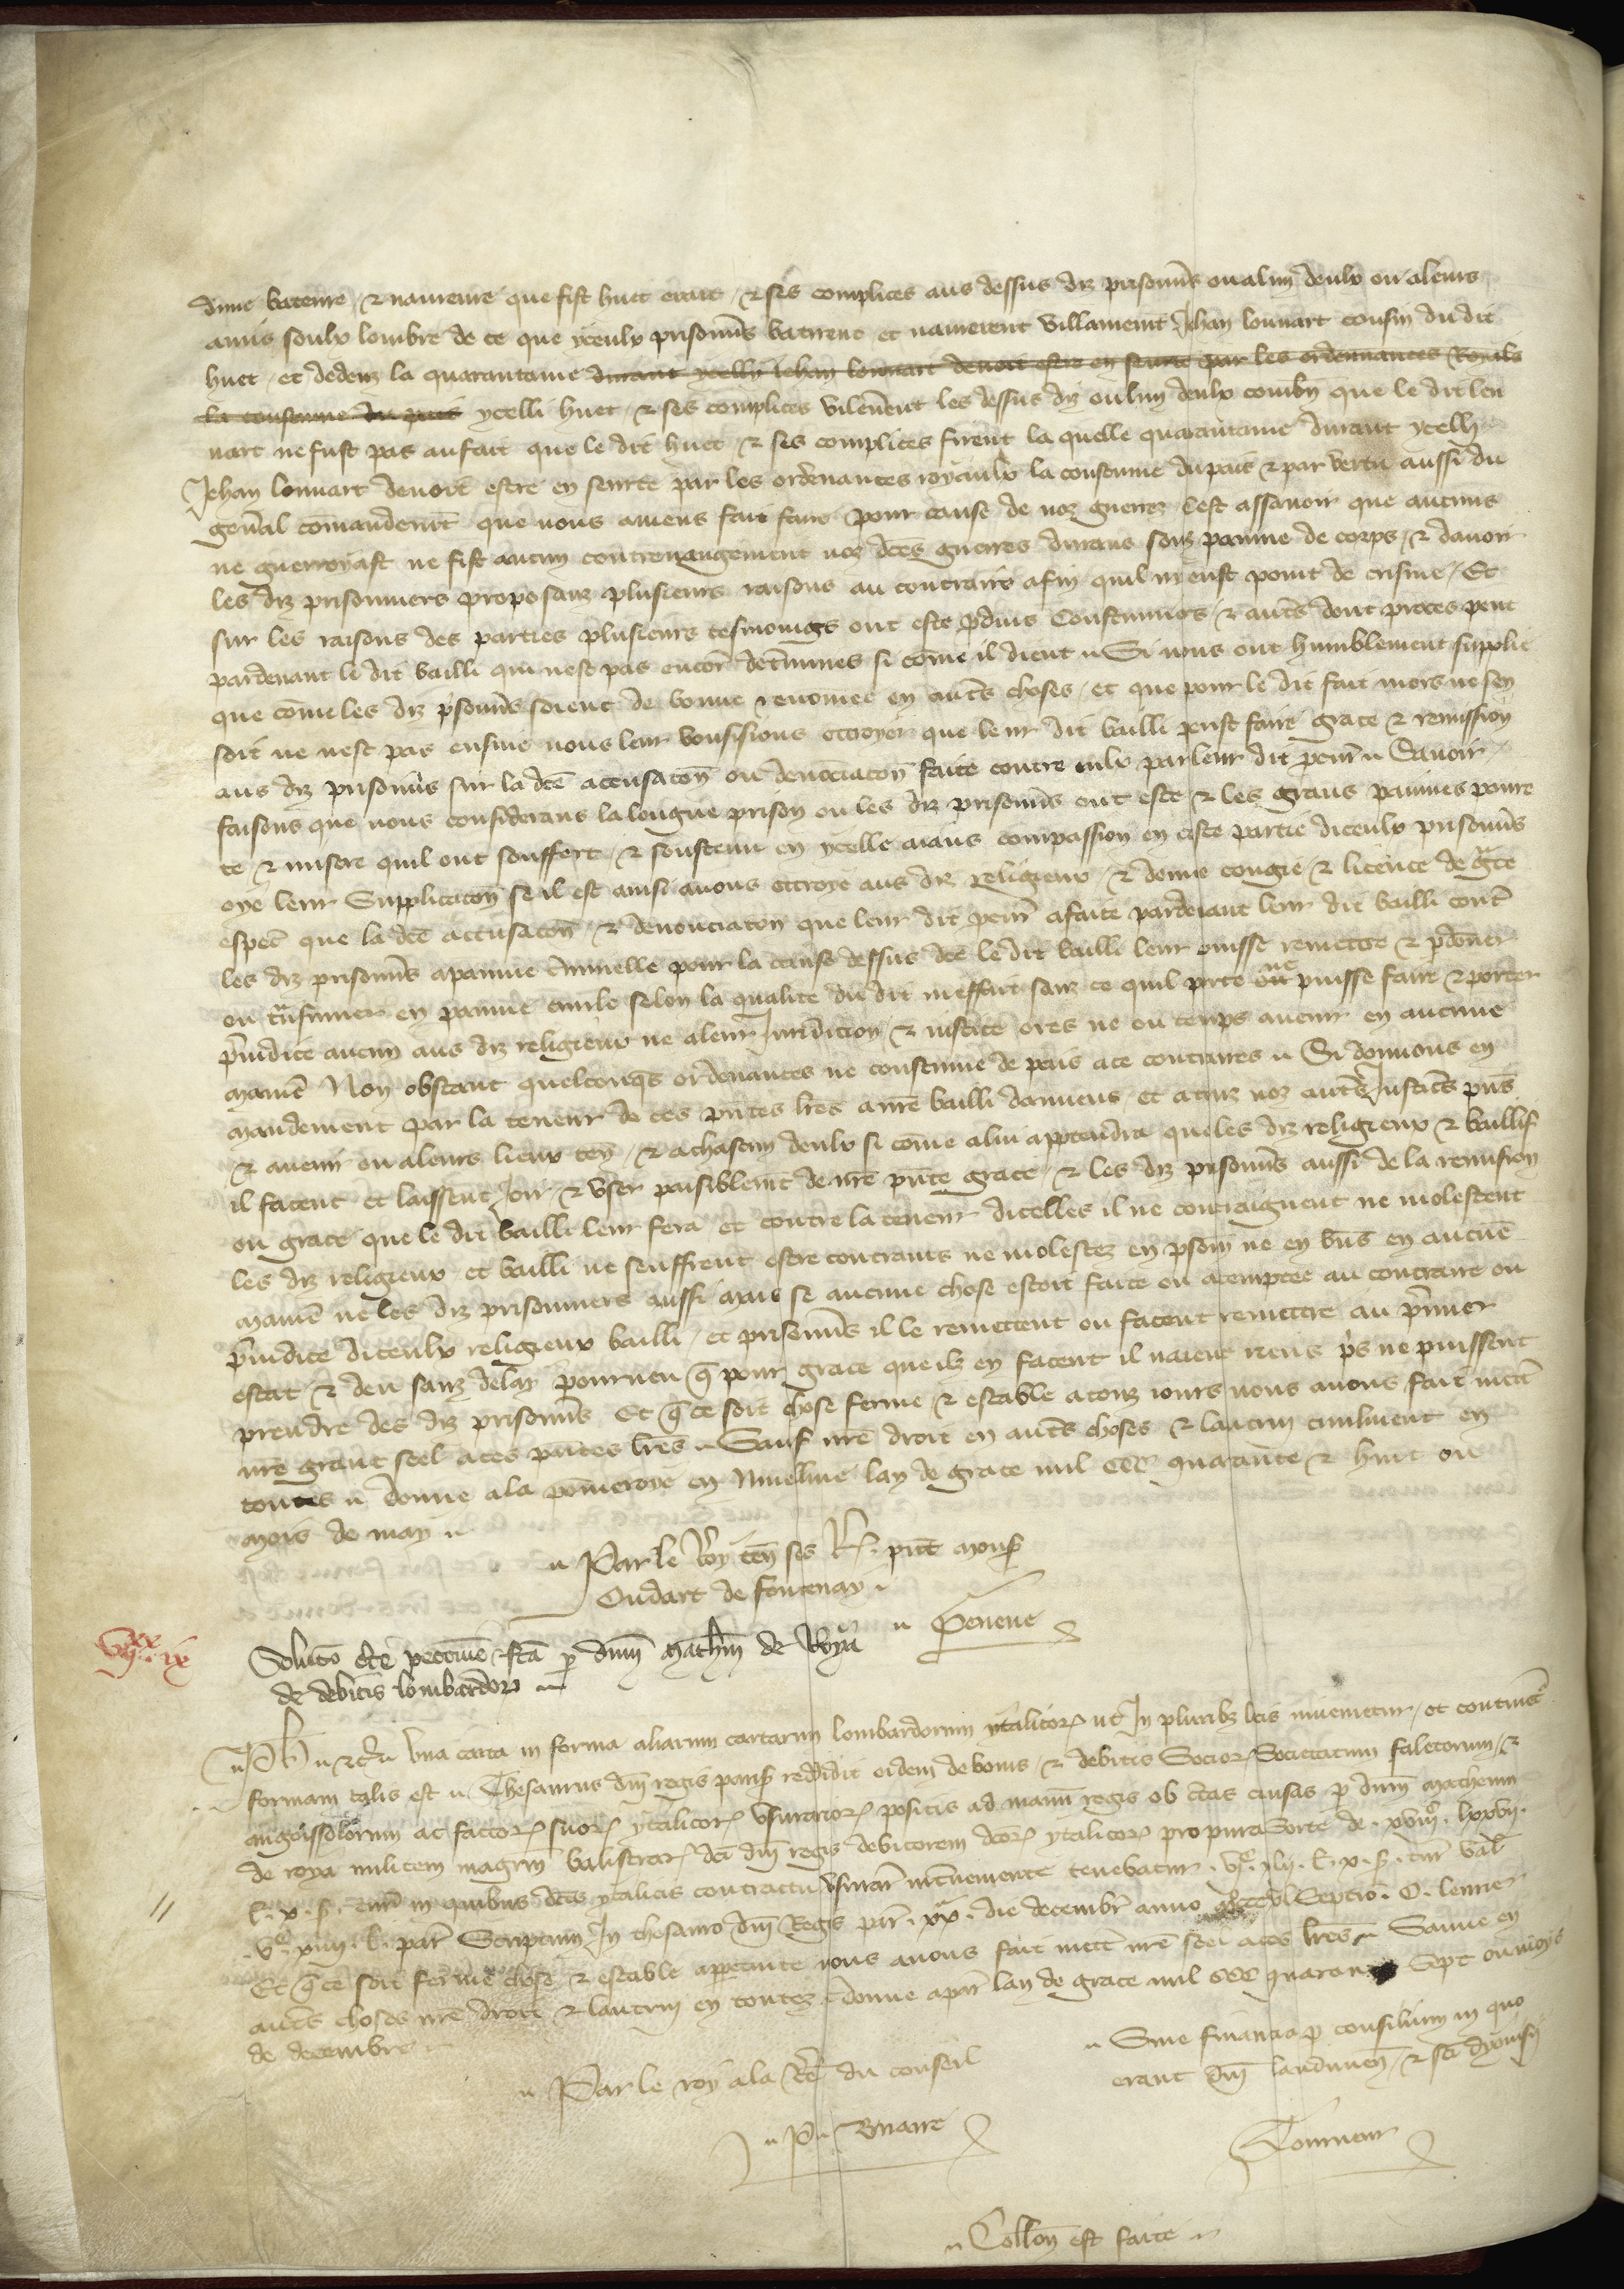 dune bateure & nameure que fist huet erart & ses complices aus dessus diz prisonn̄s ou alun deulx ou a leurs
amis soulx lombre de ce que yceulx prisonn̄s batirent et namerent villainemt̄ Jehan louuart cousin du dit
huet et dedenz la quarantaine durant ycelly Jehan louuart deuoit estre en seurte par les ordennances Royals
la coustume du pais ycelli huet & ses complices vilenērent les dessus diz ou lun deulx combn̄ que le dit lou
uart ne fust pas au fait que le dit huet & ses complices firent la quelle quarantaine durant ycelli
Jehan louuart deuoit estre en seurte par les ordenances royaulx la coustume du pais & par vertu aussi du
gen̄al comandemt̄ que nous auiens fait faire pour cause de noz guerres cest assauoir que aucuns
ne guerroyast ne fist aucun contreuangement noz dc̄es guerres durans sour painne de corps & dauoir
les diz prisonniers proposanz plusieurs raisons au contraire afin quil ny eust point de crisme Et
sur les raisons des parties plusieurs tesmoings ont este p̄duis Coustumiers & aut̄s dont proces pent
pardeuant le dit bailli qui nest pas encor det̄mines si cōme il dient Si nous ont humblement supplie
que cōme les diz p̄sonn̄s soient de bonne renomee en aut̄s choses et que pour le dit fait mors ne sen
soit ne nest pas ensuie nous leur vousissions ottroyer que leur dit bailli peust faire grace & remission
aus diz prisonn̄s sur la dc̄e accusacōn ou denōciacōn faite contre eulx par leur dit pcur̄ Sauoir
faisons que nous considerans la longue prison ou les diz prisonn̄s ont este & les grans painnes poure
te & misere quil ont souffert & soustenu en ycelle aians compassion en ceste partie diceulx prisonn̄s
oye leur Supplicacōn se il est ainsi auons ottroye aus diz religieux & donne congie & licence de gr̄ce
especl̄ que la dc̄e accusacōn & denonciacōn que leur dit pcur̄ a faite pardeuant leur dit bailli cont̄
les diz prisonn̄s a painne c̄minelle pour la cause dessus dc̄e le dit bailli leur puisse remettre & p̄doner
ou tr̄ssmuer en painne ciuile selon la qualite du dit meffait sanz ce quil porte ou ne puisse faire & porter
p̄iudice aucun aus diz religieux ne a leur Juridicion & iustice ores ne ou temps auenir en aucune
maniē Non obstant quelconqs̄ ordenances ne coustume de pais a ce contraires Si donnons en
mandement par la teneur de ces pn̄tes lr̄es a nr̄e bailli damiens et a touz noz autr̄s Justic̄s pn̄s
& auenir ou a leurs lieux ten̄ & a chascun deulx si cōme a lui appartendra que les diz religieux & baillif
il facent et laissent Joir & vser paisiblemt̄ de nr̄e pn̄te grace & les diz prisonn̄s aussi de la remission
ou grace que le dit bailli leur fera et contre la teneur dicelles il ne contraignent ne molestent
les diz religieux et bailli ne seuffrent estre contrains ne molestez en p̄sonn̄ ne en biēs en aucun̄e
maniē ne les diz prisonniers aussi mais se aucune chose estoit faite ou atemptee au contraire ou
p̄iudice diceulx religieux bailli et prisonn̄s il le remettent ou facent remettre au p̄mier
estat & deu sanz delay pourueu q̄ pour grace que ilz en facent il naient riens p̄s ne puissent
prendre des diz prisonn̄s Et q̄ ce soit chose ferme & estable a touz iours nous auons fait mett̄
nr̄e grant seel a ces pn̄tes lr̄es Sauf nr̄e droit en aut̄s choses & lautrui en
toutes donne a la pōmeroye en lan de grace mil CCC quarante & huit ou
mois de may
Par le Roy ten̄ ses pn̄t mons̄
Oudart de fontenay
vijxx ix
Soluc̄o c̄te peccunie fc̄a p̄ dnm̄ math̄m de Roya
de debitis lombardor̄
Ph̄ & c̄ Vna carta in forma aliarum cartarum lombardorum ytalicor̄ ut In pluribz lc̄is inuenietur et continet̄
formam talis est Thesaurus dn̄i regis paris̄ reddidit eidem de bonis & debitis Socior̄ Societatum faletorum &
angoissolorum ac factor̄ suor̄ ytalicor̄ vsurarior̄ positis ad manū regis ob c̄tas causas p̄ dnm̄ matheum
de roya militem magrm̄ balistrar̄ dc̄i dn̄i regis debitorem dc̄or̄ ytalicor̄ pro pura Sorte de lxxvij
l. x. s. tur̄ in quibus dc̄is ytalicis contractu vsurar̄ int̄ueniente tenebatur l. x. s. tur̄ val̄
l. par̄ Scriptum In thesauro dn̄i Regis par̄ die decembr̄ anno
Et q̄ ce soit ferme chose & estable a nous auons fait mett̄ nr̄e seel a ces lr̄es Sauue en
aut̄s choses nr̄e droit & lautrui en toutes donne a par̄ lan de grace mil CCC quarante Sept ou mois
de decembre
Par le roy a la du conseil
Sine financia p̄ consilium in quo
erant dn̄i laudunen̄ & sc̄i dyonisij
P. Briarre
Tourneur
Collon̄ est faite